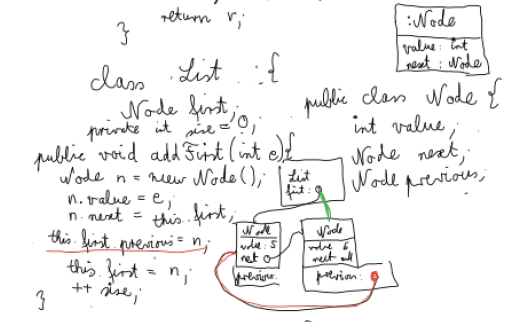 return r;
}
:Node
value: int
next: Node
class List : {
Node first;
private int size = 0;
public void addFirst(int e){
Node n = new Node();
n.value = e;
n.next = this.first;
this.first.previous = n;
this.first = n;
++ size;
}
public class Node {
int value;
Node next;
Node previous;
List
first:
Node
value: 5
next
previous
Node
value 6
next null
previous: